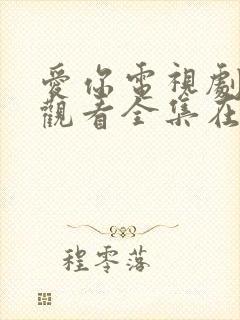 愛你電視劇
觀看全集在
程零落